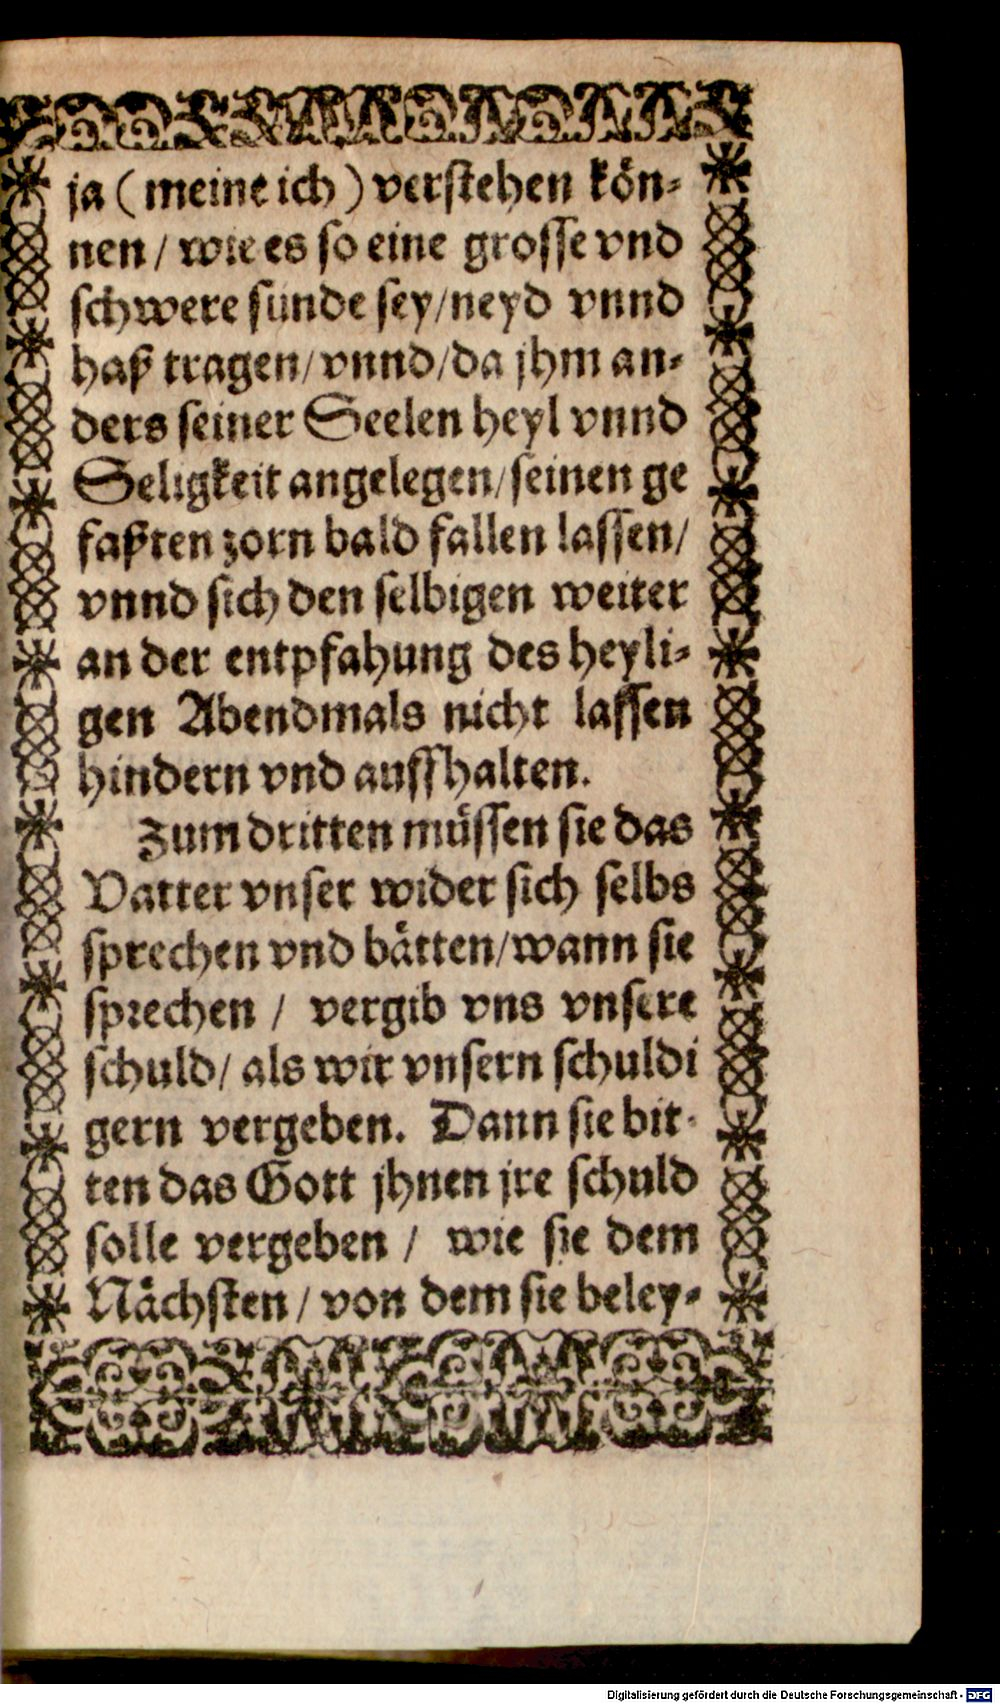 ja (meine ich) verstehen kön-
nen / wie es so eine grosse vnd
schwere sünde sey/neyd vnnd
haß tragen/vnnd/da jhm an-
ders seiner Seelen heyl vnnd
Seligkeit angelegen/seinen ge
faßten zorn bald fallen lassen/
vnnd sich den selbigen weiter
an der entpfahung des heyli-
gen Abendmals nicht lassen
hindern vnd auffhalten.
Zum dritten müssen sie das
Vatter vnser wider sich selbs
sprechen vnd bätten/wann sie
sprechen / vergib vns vnsere
schuld/ als wir vnsern schuldi
gern vergeben. Dann sie bit-
ten das Gott jhnen jre schuld
solle vergeben / wie sie dem
Nächsten / von dem sie beley-
Digitalisierung gefördert durch die Deutsche Forschungsgemeinschaft - DFG